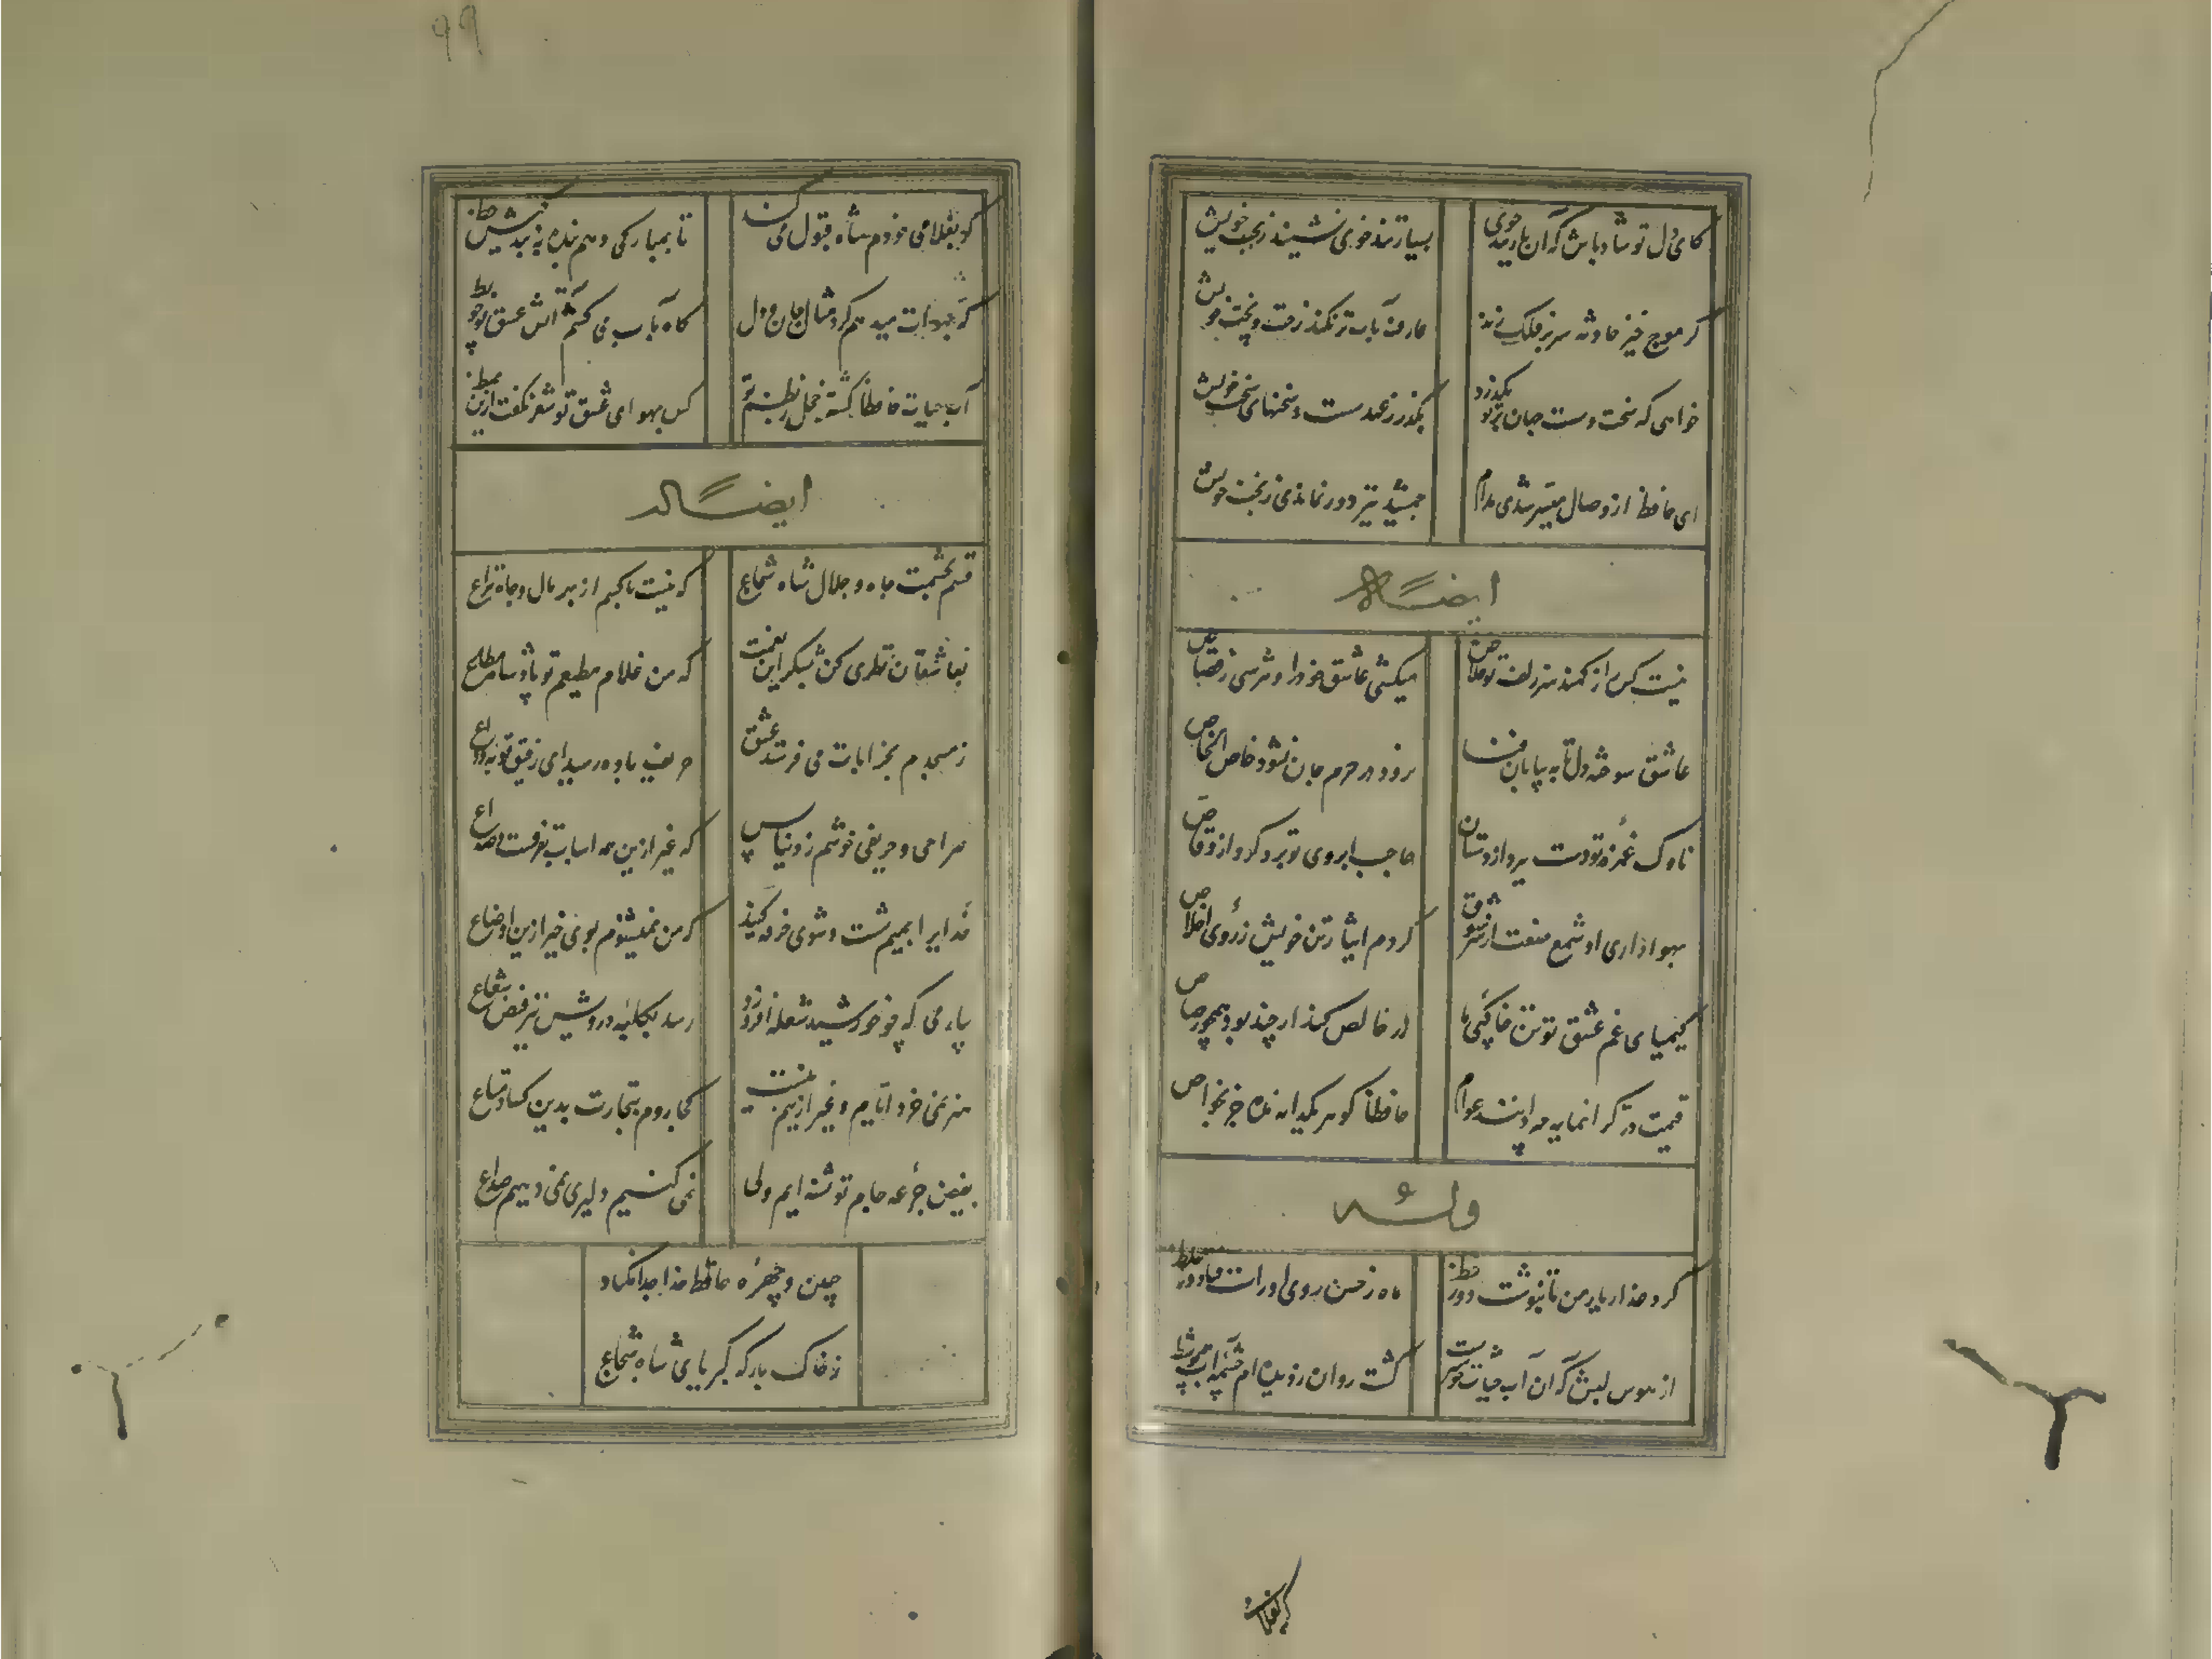 کای دل تو شاد باش که آن یار تندخوی
بسیار تندخوی نشیند ز بخت خویش
گر موج خیز حادثه سر بر فلک زند
عارف بآب تر نکند رخت و پخت خویش
خواهی که سخت و سست جهان بر تو بگذرد
بگذر ز عهد سست و سخنهای سخت خویش
ای حافظ ار وصال میسر شدی مدام
جمشید نیز دور نماندی ز تخت خویش
ایضاً له
نیست کس را ز کمند سر زلف تو خلاص
میکشی عاشق خود را و نترسی ز قصاص
عاشق سوخته دل تا به بیابان فنا
نرود در حرم جان نشود خاص الخاص
ناوک غمزه تو دست ببرد از دستان
حاجب ابروی تو برد گرو از وقاص
بهواداری او شمع صفت از سر شوق
کردم ایثار تن خویش ز روی اخلاص
کیمیای غم عشق تو تن خاکی ما
زر خالص کند ار چند بود همچو رصاص
قیمت در گرانمایه چه دانند عوام
حافظا گوهر یکدانه مده جز بخواص
وله
گرد عذار یار من تا بنوشت دور خط
ماه ز حسن روی او راست فتاد در غلط
از هوس لبش که آن آب حیات خوشترست
گشت روان ز دیده ام چشمه آب همچو شط
گر بغلامی
۹۹
گر بغلامی خودم شاه قبول می کند
تا بمبارکی دهم بنده به بندگیش خط
گه بهوات میدهم گرد مثال جان و دل
گاه بآب می کشم آتش عشق تو چو بط
آب حیات حافظا گشته خجل ز نظم تو
کس بهوای عشق تو شعر نگفت ازین نمط
ایضاً له
قسم بحشمت و جاه و جلال شاه شجاع
که نیست با کسم از بهر مال و جاه نزاع
بعاشقان نظری کن بشکر این نعمت
که من غلام مطیعم تو پادشاه مطاع
ز مسجدم بخرابات می فرستد عشق
حریف باده رسید ای رفیق توبه وداع
صراحی و حریفی خوشم ز دنیا بس
که غیر ازین همه اسباب تفرقست و صداع
خدایرا بمیم شست و شوی خرقه کنید
که من نمیشنوم بوی خیر ازین اوضاع
بیار می که چو خورشید شعله افروزد
رسد بکلبه درویش نیز فیض شعاع
هنر نمی خرد ایام و غیر ازینم نیست
کجا روم بتجارت بدین کساد متاع
بفیض جرعه جام تو تشنه ایم ولی
نمی کنیم دلیری نمی دهیم صداع
جبین و چهره حافظ خدا جدا مکناد
ز خاک بارگه کبریای شاه شجاع